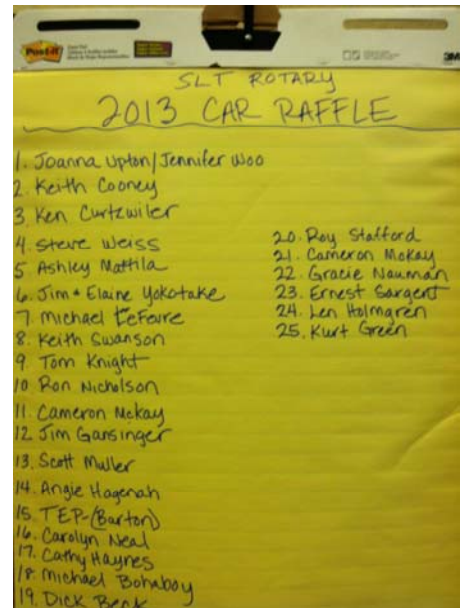 Post-it
3M
SLT ROTARY
2013 CAR RAFFLE
1. Joanna Upton/Jennifer Woo
2. Keith Cooney
3. Ken Curtzwiler
4. Steve Weiss
5 Ashley Mattila
6. Jim + Elaine Yokotake
7. Michael LeFevre
8. Keith Swanson
9 Tom Knight
10 Ron Nicholson
11. Cameron McKay
12 Jim Gansinger
13. Scott Muller
14. Angie Hagenah
15. TEP-(Barton)
16. Carolyn Neal
17. Cathy Haynes
18. Michael Bohaboy
19. Dick Beck
20. Roy Stafford
21. Cameron McKay
22. Gracie Nauman
23. Ernest Sargent
24. Len Holmgren
25. Kurt Green